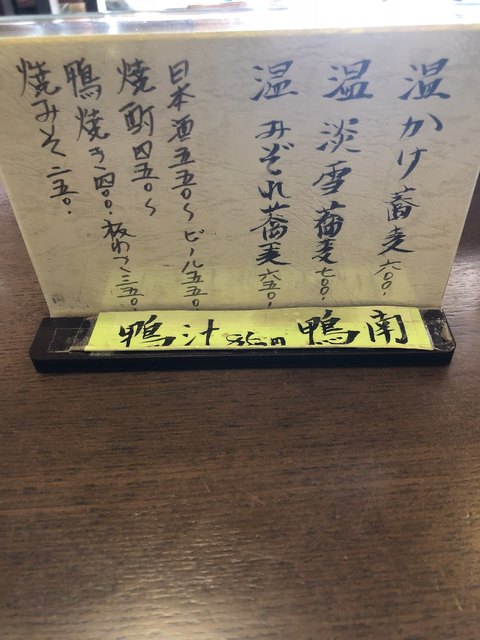 温かけ蕎麦六〇〇.
温淡雪蕎麦七〇〇.
温みぞれ蕎麦六五〇.
日本酒五五〇〜ビール五五〇.
焼酎四五〇〜
鴨焼き.四〇〇.板わさ三五〇.
焼みそ二五〇.
鴨汁 850円 鴨南